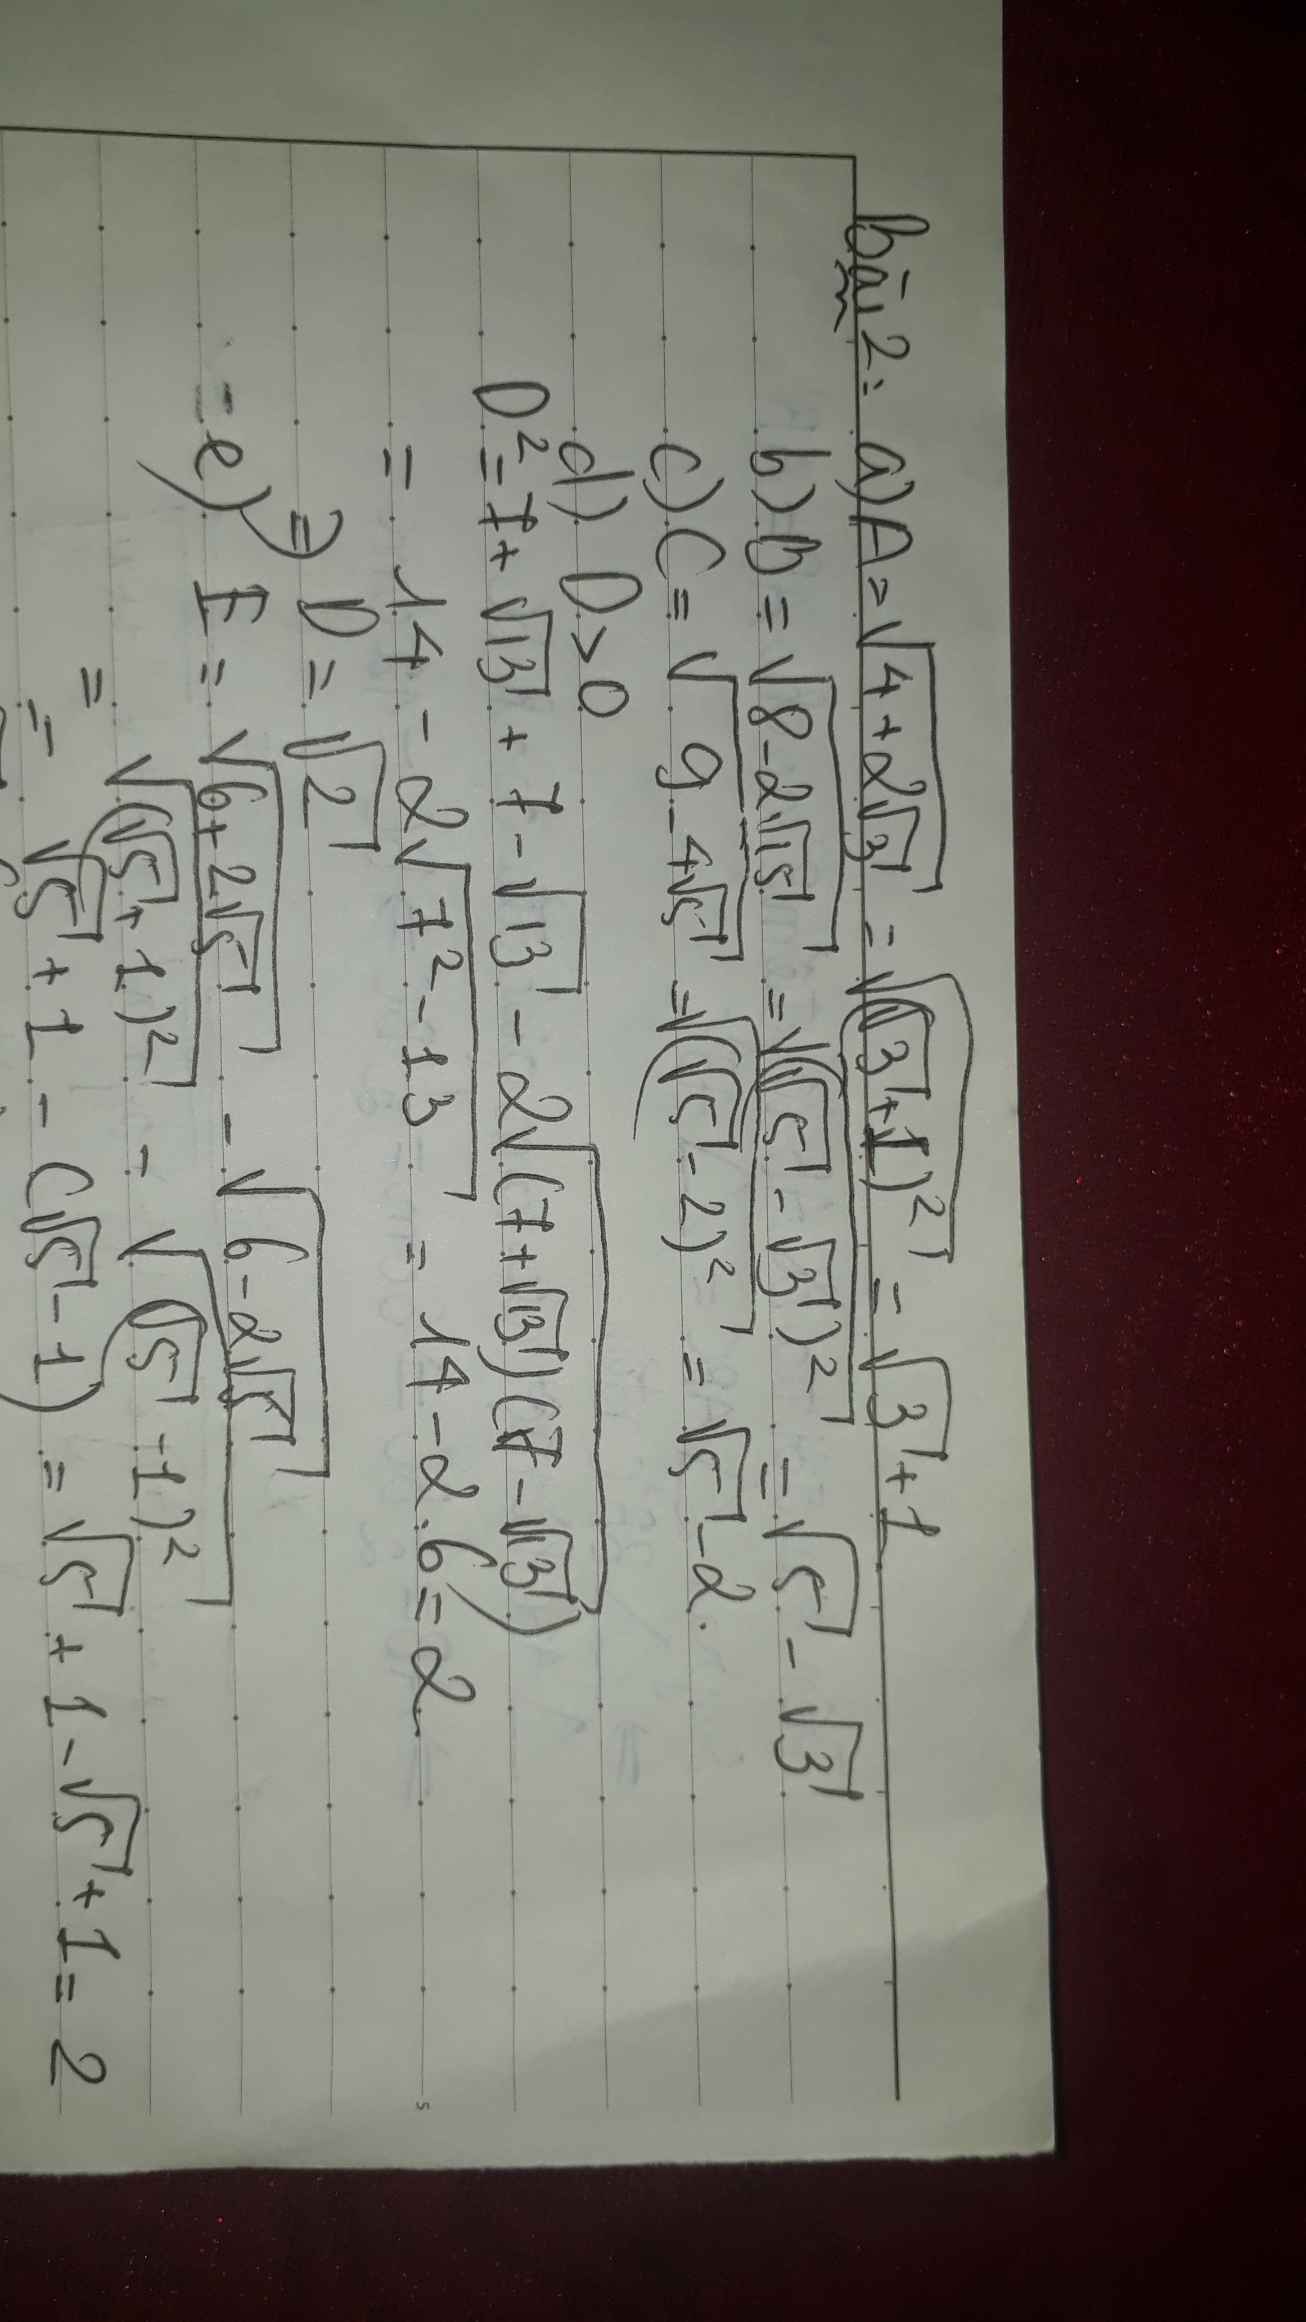 bài 2: a) A = √(4+2√3) = √((√3+1)²) = √3+1
b) B = √(8-2√15) = √((√5-√3)²) = √5-√3
c) C = √(9-4√5) = √((√5-2)²) = √5-2.
d) D>0
D² = 7+√13 + 7-√13 - 2√((7+√13)(7-√13))
= 14 - 2√(7²-13) = 14-2.6=2
⇒ D = √2
e) E = √(6+2√5) - √(6-2√5)
= √((√5+1)²) - √((√5-1)²)
= √5+1-(√5-1) = √5+1-√5+1=2